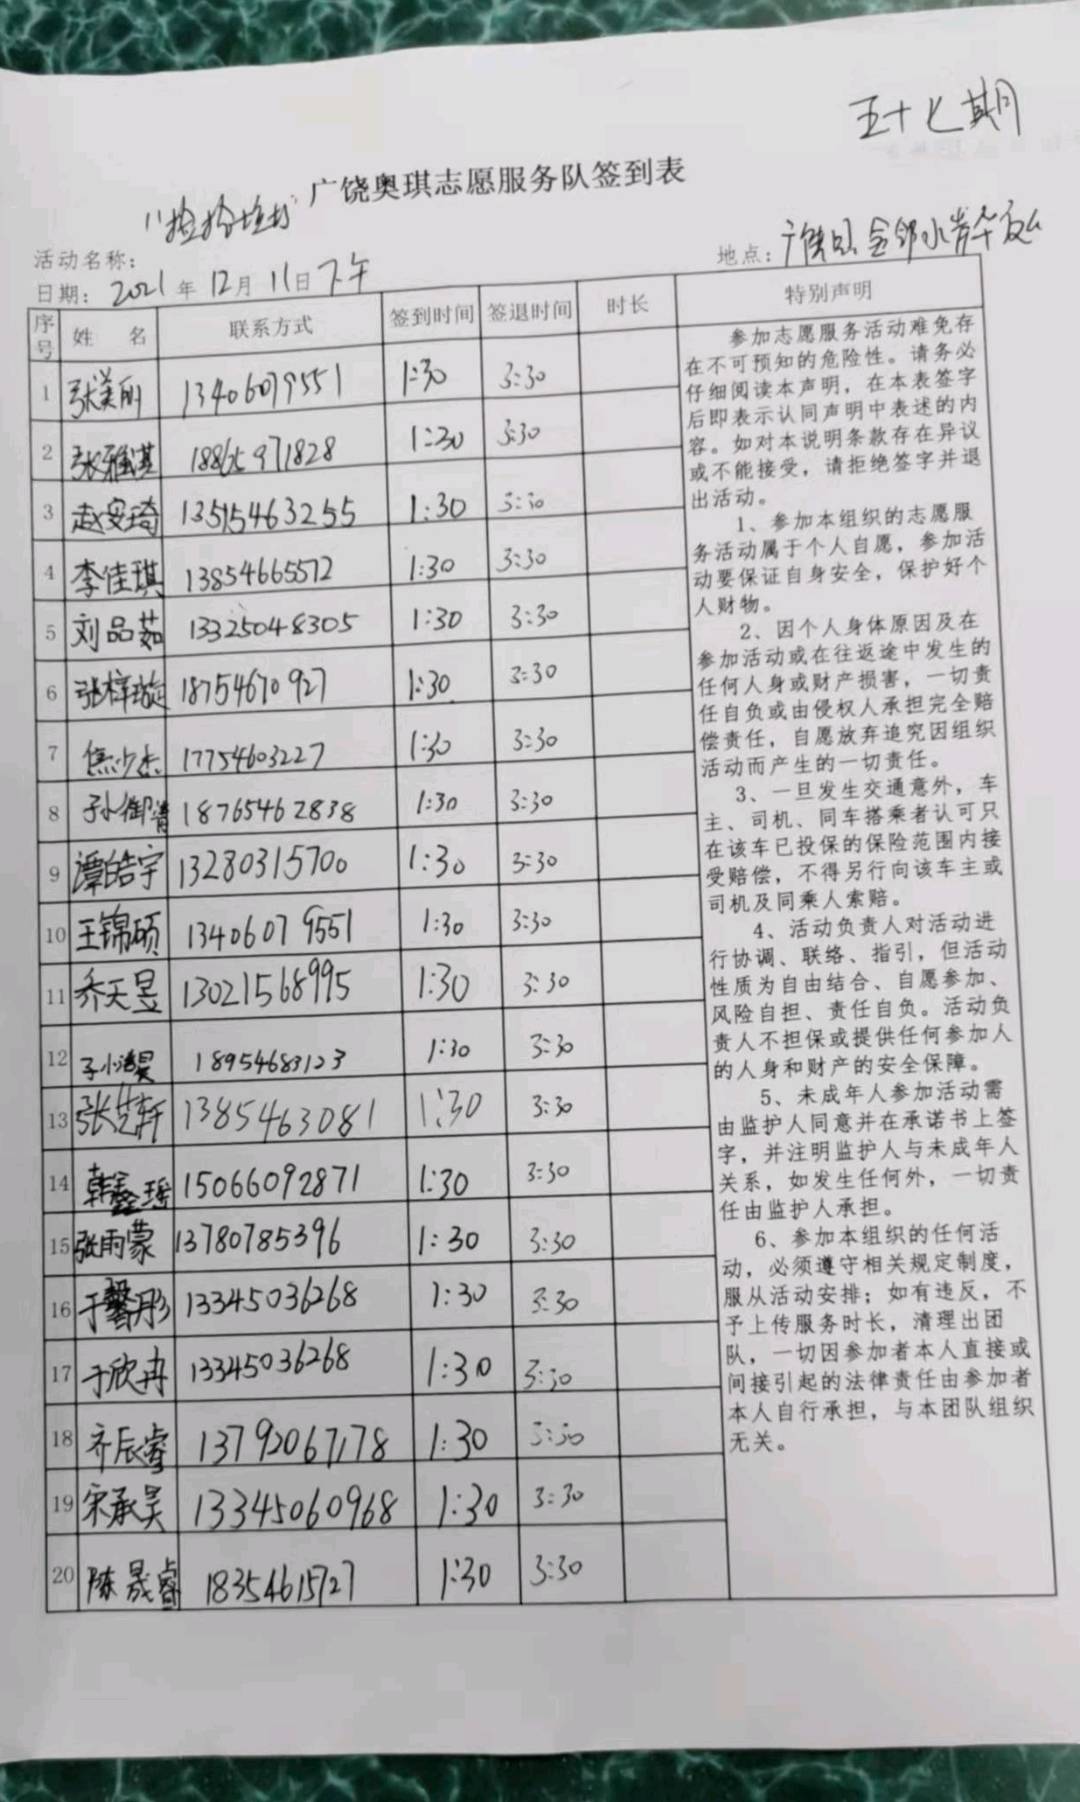 五十七期
广饶奥琪志愿服务队签到表
活动名称：
地点：
日期：2021年12月11日下午
序号 姓 名 联系方式 签到时间 签退时间 时长 特别声明
1 张美丽 13406079551 1:30 3:30
2 张雅淇 18865971828 1:30 3:30
3 赵安琦 13515463255 1:30 3:30
4 李佳琪 13854665572 1:30 3:30
5 刘品茹 13325048305 1:30 3:30
6 张梓璇 18754670927 1:30 3:30
7 焦少杰 17754603227 1:30 3:30
8 孙御清 18765462838 1:30 3:30
9 谭皓宇 13280315700 1:30 3:30
10 王锦硕 13406079551 1:30 3:30
11 乔天昱 13021568995 1:30 3:30
12 18954683123 1:30 3:30
13 1385463081 1:30 3:30
14 韩鑫瑶 15066092871 1:30 3:30
15 张雨蒙 13780785396 1:30 3:30
16 于馨彤 13345036268 1:30 3:30
17 于欣冉 13345036268 1:30 3:30
18 齐辰睿 13792067178 1:30 3:30
19 宋承昊 13345060968 1:30 3:30
20 陈晟睿 18354615727 1:30 3:30
参加志愿服务活动难免存
在不可预知的危险性。请务必
仔细阅读本声明，在本表签字
后即表示认同声明中表述的内
容。如对本说明条款存在异议
或不能接受，请拒绝签字并退
出活动。
1、参加本组织的志愿服
务活动属于个人自愿，参加活
动要保证自身安全，保护好个
人财物。
2、因个人身体原因及在
参加活动或在往返途中发生的
任何人身或财产损害，一切责
任自负或由侵权人承担完全赔
偿责任，自愿放弃追究因组织
活动而产生的一切责任。
3、一旦发生交通意外，车
主、司机、同车搭乘者认可只
在该车已投保的保险范围内接
受赔偿，不得另行向该车主或
司机及同乘人索赔。
4、活动负责人对活动进
行协调、联络、指引，但活动
性质为自由结合、自愿参加、
风险自担、责任自负。活动负
责人不担保或提供任何参加人
的人身和财产的安全保障。
5、未成年人参加活动需
由监护人同意并在承诺书上签
字，并注明监护人与未成年人
关系，如发生任何外，一切责
任由监护人承担。
6、参加本组织的任何活
动，必须遵守相关规定制度，
服从活动安排；如有违反，不
予上传服务时长，清理出团
队，一切因参加者本人直接或
间接引起的法律责任由参加者
本人自行承担，与本团队组织
无关。